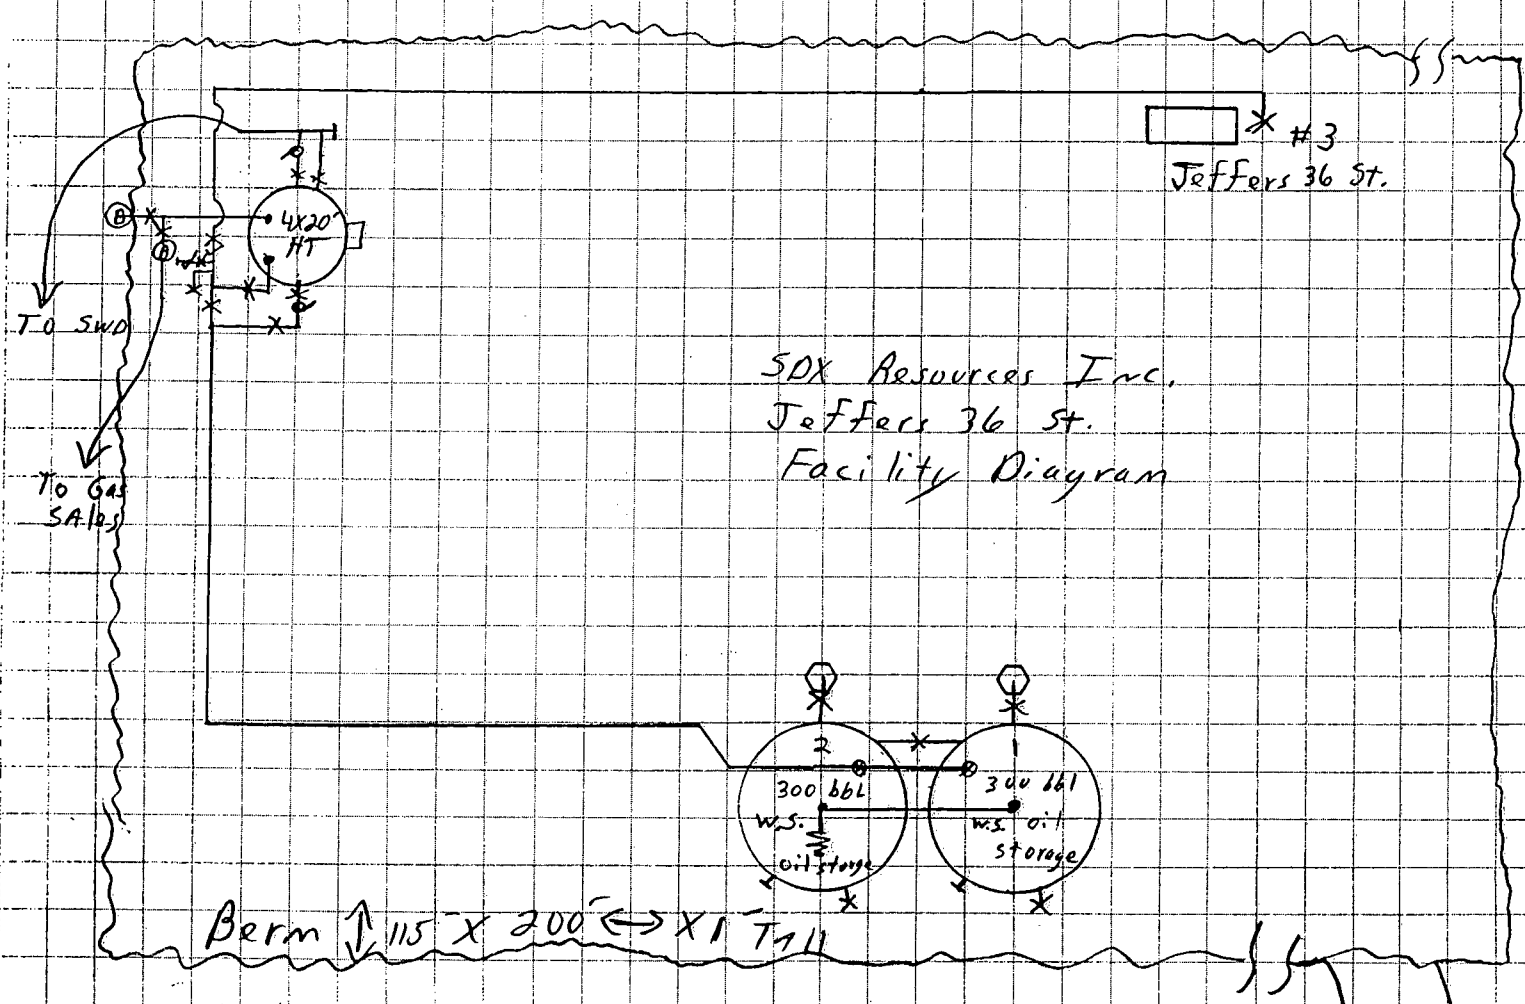 #3
Jeffers 36 St.
4X20'
HT
To SWD
To Gas
SAles
SDX Resources Inc.
Jeffers 36 St.
Facility Diagram
2
300 bbl
w.s.
oil storge
1
300 bbl
w.s. oil
storage
Berm ↕ 115' X 200' ↔ X 1' Tall